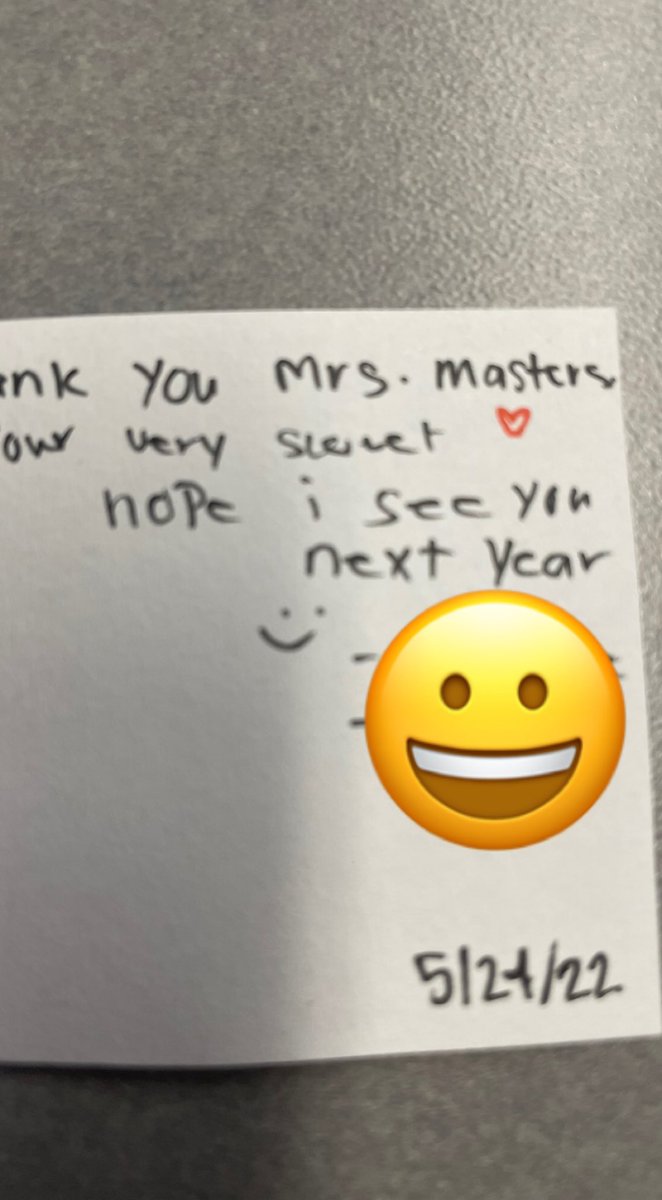 ank You Mrs. Masters
your very sweet
hope i see you
next year
5/24/22